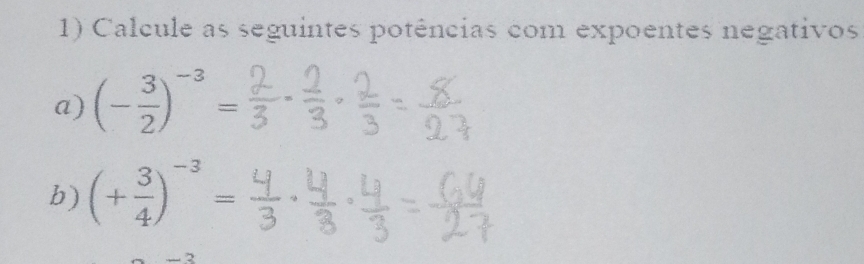 1) Calcule as seguintes potências com expoentes negativos
a) (-3/2)^-3 = 2/3 · 2/3 · 2/3 = 8/27
b) (+3/4)^-3 = 4/3 · 4/3 · 4/3 = 64/27